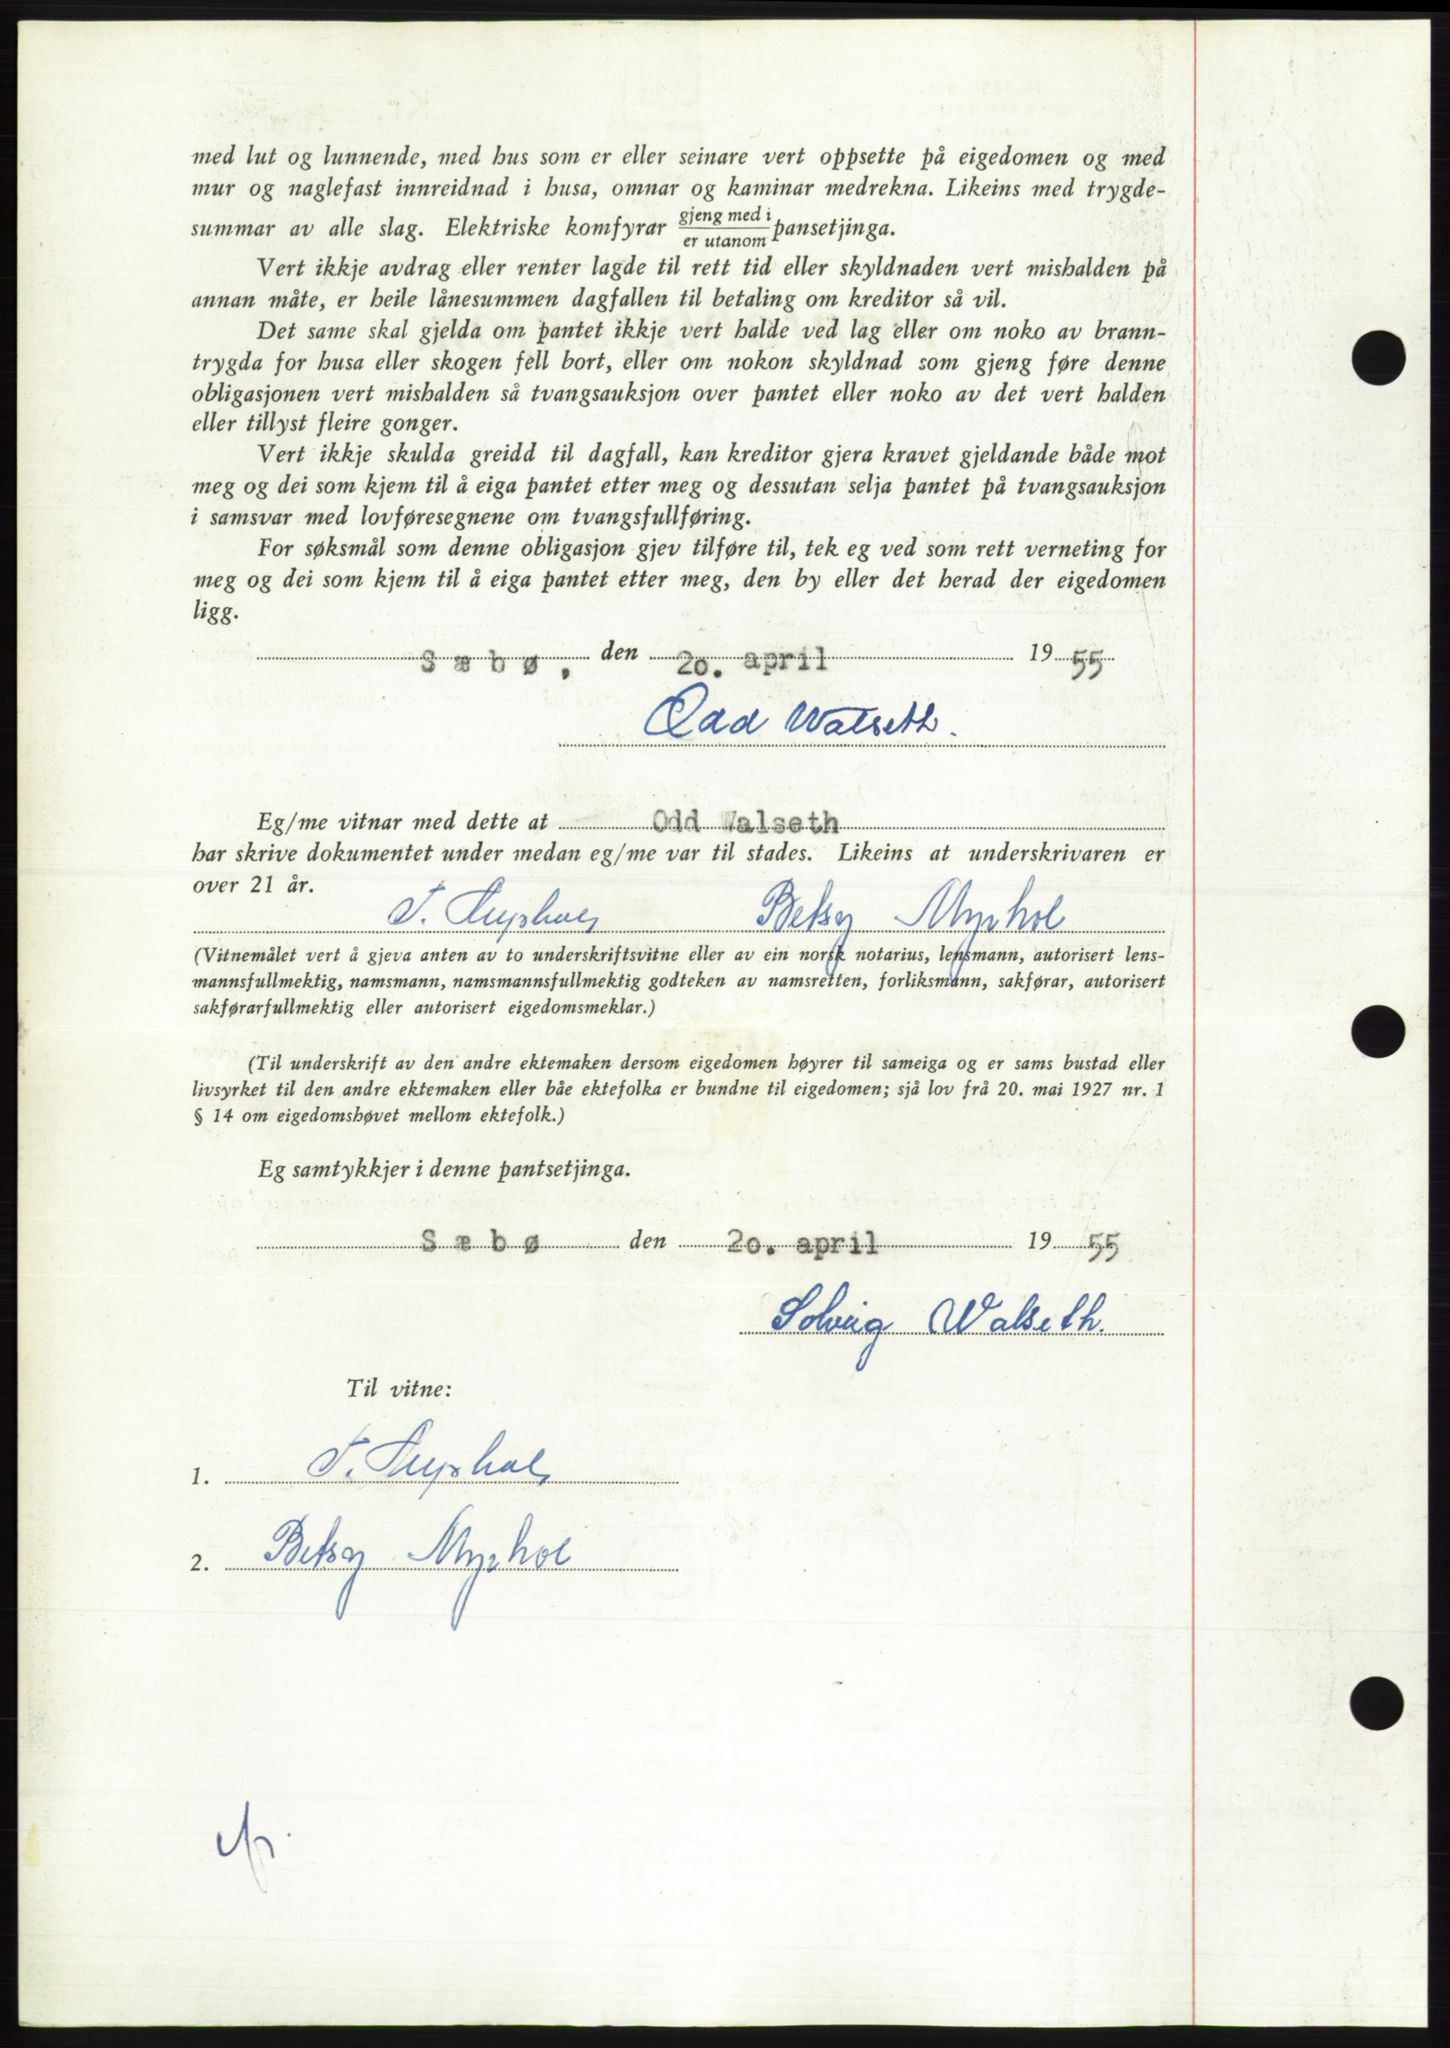 med lut og lunnende, med hus som er eller seinare vert oppsette på eigedomen og med
mur og naglefast innreidnad i husa, omnar og kaminar medrekna. Likeins med trygde-
summar av alle slag. Elektriske komfyrar gjeng med i / er utanom pansetjinga.
Vert ikkje avdrag eller renter lagde til rett tid eller skyldnaden vert mishalden på
annan måte, er heile lånesummen dagfallen til betaling om kreditor så vil.
Det same skal gjelda om pantet ikkje vert halde ved lag eller om noko av brann-
trygda for husa eller skogen fell bort, eller om nokon skyldnad som gjeng føre denne
obligasjonen vert mishalden så tvangsauksjon over pantet eller noko av det vert halden
eller tillyst fleire gonger.
Vert ikkje skulda greidd til dagfall, kan kreditor gjera kravet gjeldande både mot
meg og dei som kjem til å eiga pantet etter meg og dessutan selja pantet på tvangsauksjon
i samsvar med lovføresegnene om tvangsfullføring.
For søksmål som denne obligasjon gjev tilføre til, tek eg ved som rett verneting for
meg og dei som kjem til å eiga pantet etter meg, den by eller det herad der eigedomen
ligg.
Sæbø, den 20. april 1955
Odd Walseth.
Eg/me vitnar med dette at Odd Walseth
har skrive dokumentet under medan eg/me var til stades. Likeins at underskrivaren er
over 21 år.
Betsy Myrhol
(Vitnemålet vert å gjeva anten av to underskriftsvitne eller av ein norsk notarius, lensmann, autorisert lens-
mannsfullmektig, namsmann, namsmannsfullmektig godteken av namsretten, forliksmann, sakførar, autorisert
sakførarfullmektig eller autorisert eigedomsmeklar.)
(Til underskrift av den andre ektemaken dersom eigedomen høyrer til sameiga og er sams bustad eller
livsyrket til den andre ektemaken eller båe ektefolka er bundne til eigedomen; sjå lov frå 20. mai 1927 nr. 1
§ 14 om eigedomshøvet mellom ektefolk.)
Eg samtykkjer i denne pantsetjinga.
Sæbø den 20. april 1955
Solveig Walseth.
Til vitne:
1.
2. Betsy Myrhol